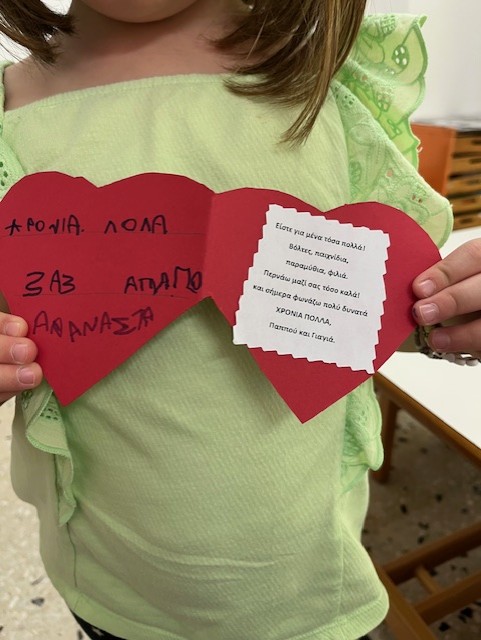 ΧΡΟΝΙΑ. ΛΟΛΑ
ΣΑΣ ΑΓΑΠΟ
ΑΘΑΝΑΣΙΑ
Είστε για μένα τόσα πολλά!
Βόλτες, παιχνίδια,
παραμύθια, φιλιά.
Περνάω μαζί σας τόσο καλά!
και σήμερα φωνάζω πολύ δυνατά
ΧΡΟΝΙΑ ΠΟΛΛΑ,
Παππού και Γιαγιά.